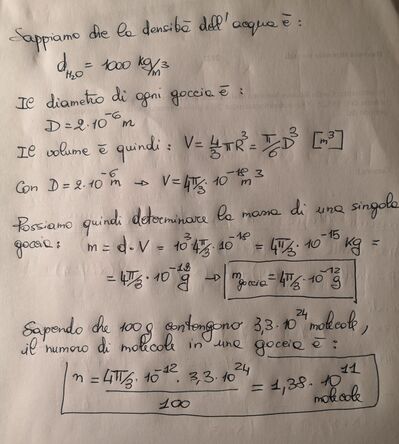 Sappiamo che la densità dell'acqua è:
d_H2O = 1000 kg/m^3
Il diametro di ogni goccia è:
D = 2·10^-6 m
Il volume è quindi: V = 4/3 πR^3 = π/6 D^3 [m^3]
Con D = 2·10^-6 m → V = 4π/3 · 10^-18 m^3
Possiamo quindi determinare la massa di una singola
goccia: m = d·V = 10^3 4π/3 · 10^-18 = 4π/3 · 10^-15 kg =
= 4π/3 · 10^-12 g → m_goccia = 4π/3 · 10^-12 g
Sapendo che 100 g contengono 3,3·10^24 molecole,
il numero di molecole in una goccia è:
n = 4π/3 · 10^-12 · 3,3·10^24 / 100 = 1,38·10^11 molecole